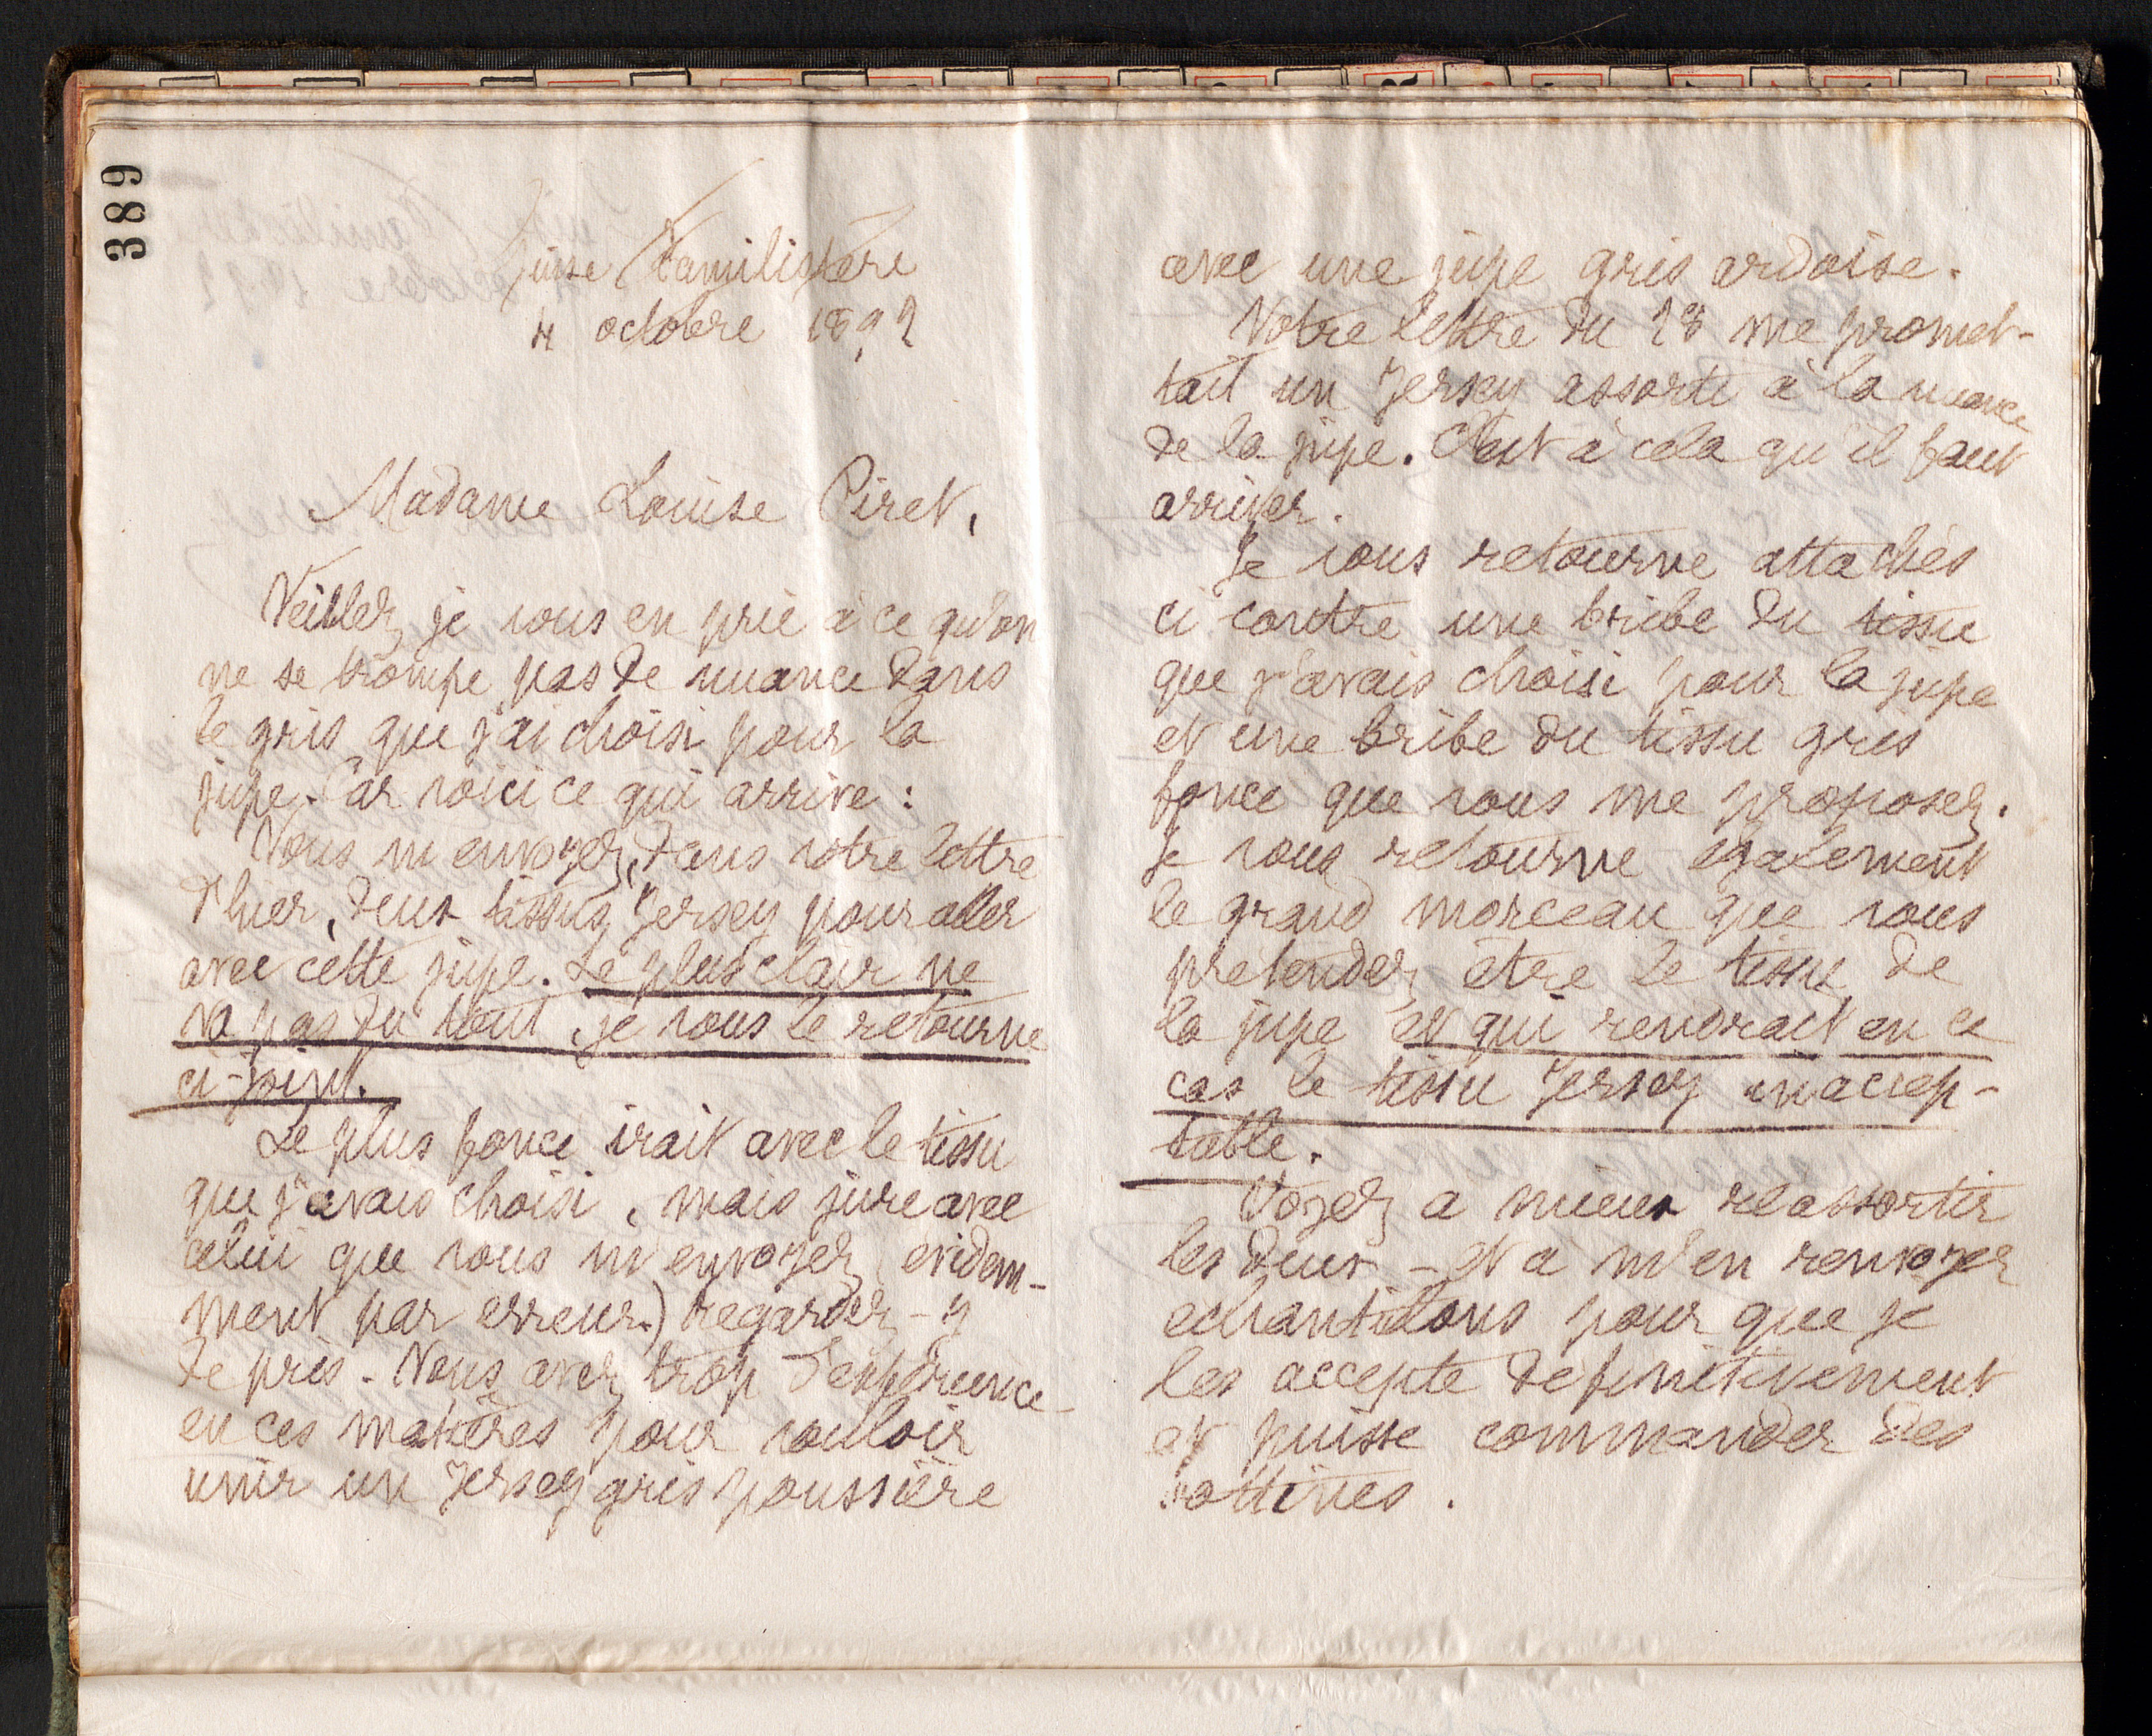 389
Guise Familistère
4 octobre 1892
Madame Louise Piret,
Veillez je vous en prie à ce qu'on
ne se trompe pas de nuance dans
le gris que j'ai choisi pour la
jupe. Car voici ce qui arrive :
Vous m'envoyez, dans votre lettre
d'hier, deux tissus Jersey pour aller
avec cette jupe. Le plus clair ne
va pas du tout, je vous le retourne
ci-joint.
Le plus foncé irait avec le tissu
que j'avais choisi, mais jure avec
celui que vous m'envoyez (evidem-
ment par erreur.) regardez-y
de près. Vous avez trop d'expérience
en ces matières pour vouloir
unir un Jersey gris poussière
avec une jupe gris ardoise.
Votre lettre du 28 me promet-
tait un Jersey assorti à la nuance
de la jupe. C'est à cela qu'il faut
arriver.
Je vous retourne attachés
ci contre une bribe du tissu
que j'avais choisi pour la jupe
et une bribe du tissu gris
foncé que vous me proposez.
Je vous retourne également
le grand morceau que vous
prétendez être le tissu de
la jupe et qui rendrait en ce
cas le tissu Jersey inaccep-
table.
Voyez a mieux réassortir
les deux - et a m'en renvoyer
echantillons pour que je
les accepte définitivement
et puisse commander des
bottines.